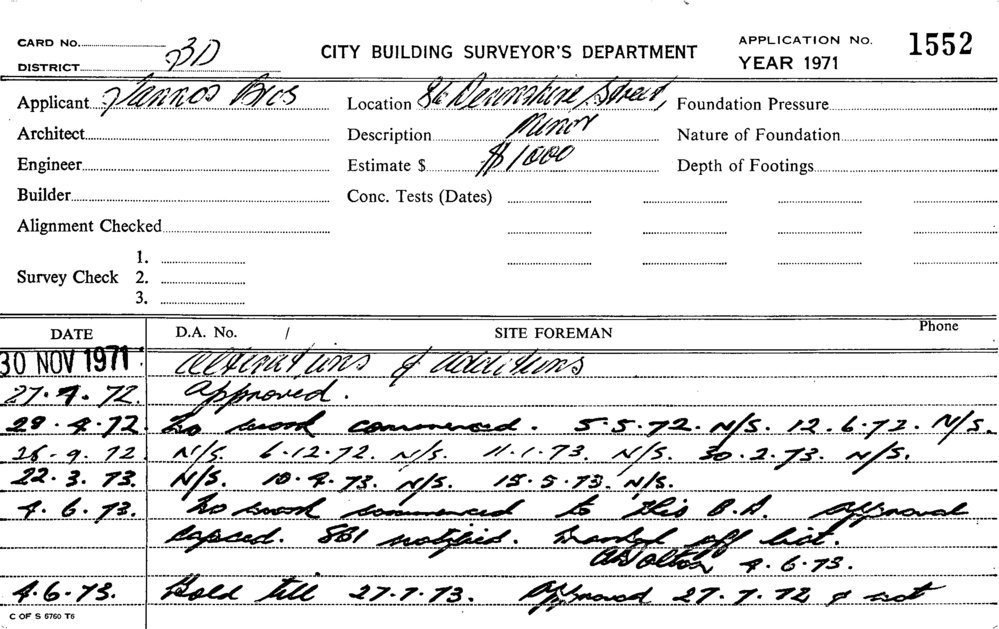 CARD No.
CITY BUILDING SURVEYOR'S DEPARTMENT
APPLICATION No. 1552
DISTRICT 3D
YEAR 1971
Applicant Tannos Bros Location 86 Devonshire Street, Foundation Pressure
Architect Description Minor Nature of Foundation
Engineer Estimate $ $1000 Depth of Footings
Builder Conc. Tests (Dates)
Alignment Checked
1.
Survey Check 2.
3.
DATE D.A. No. / SITE FOREMAN Phone
30 NOV 1971 alterations & additions
27.4.72. approved.
28.4.72 No work commenced. 5.5.72. N/S. 12.6.72. N/S.
26.9.72 N/S. 6.12.72. N/S. 11.1.73. N/S. 30.2.73. N/S.
22.3.73. N/S. 10.4.73. N/S. 15.5.73. N/S.
4.6.73. No work commenced to this B.A. approval
lapsed. SBI notified. Marked off list.
4.6.73.
4.6.73. Hold till 27.7.73. Approved 27.7.72 & not
C OF S 6760 T6